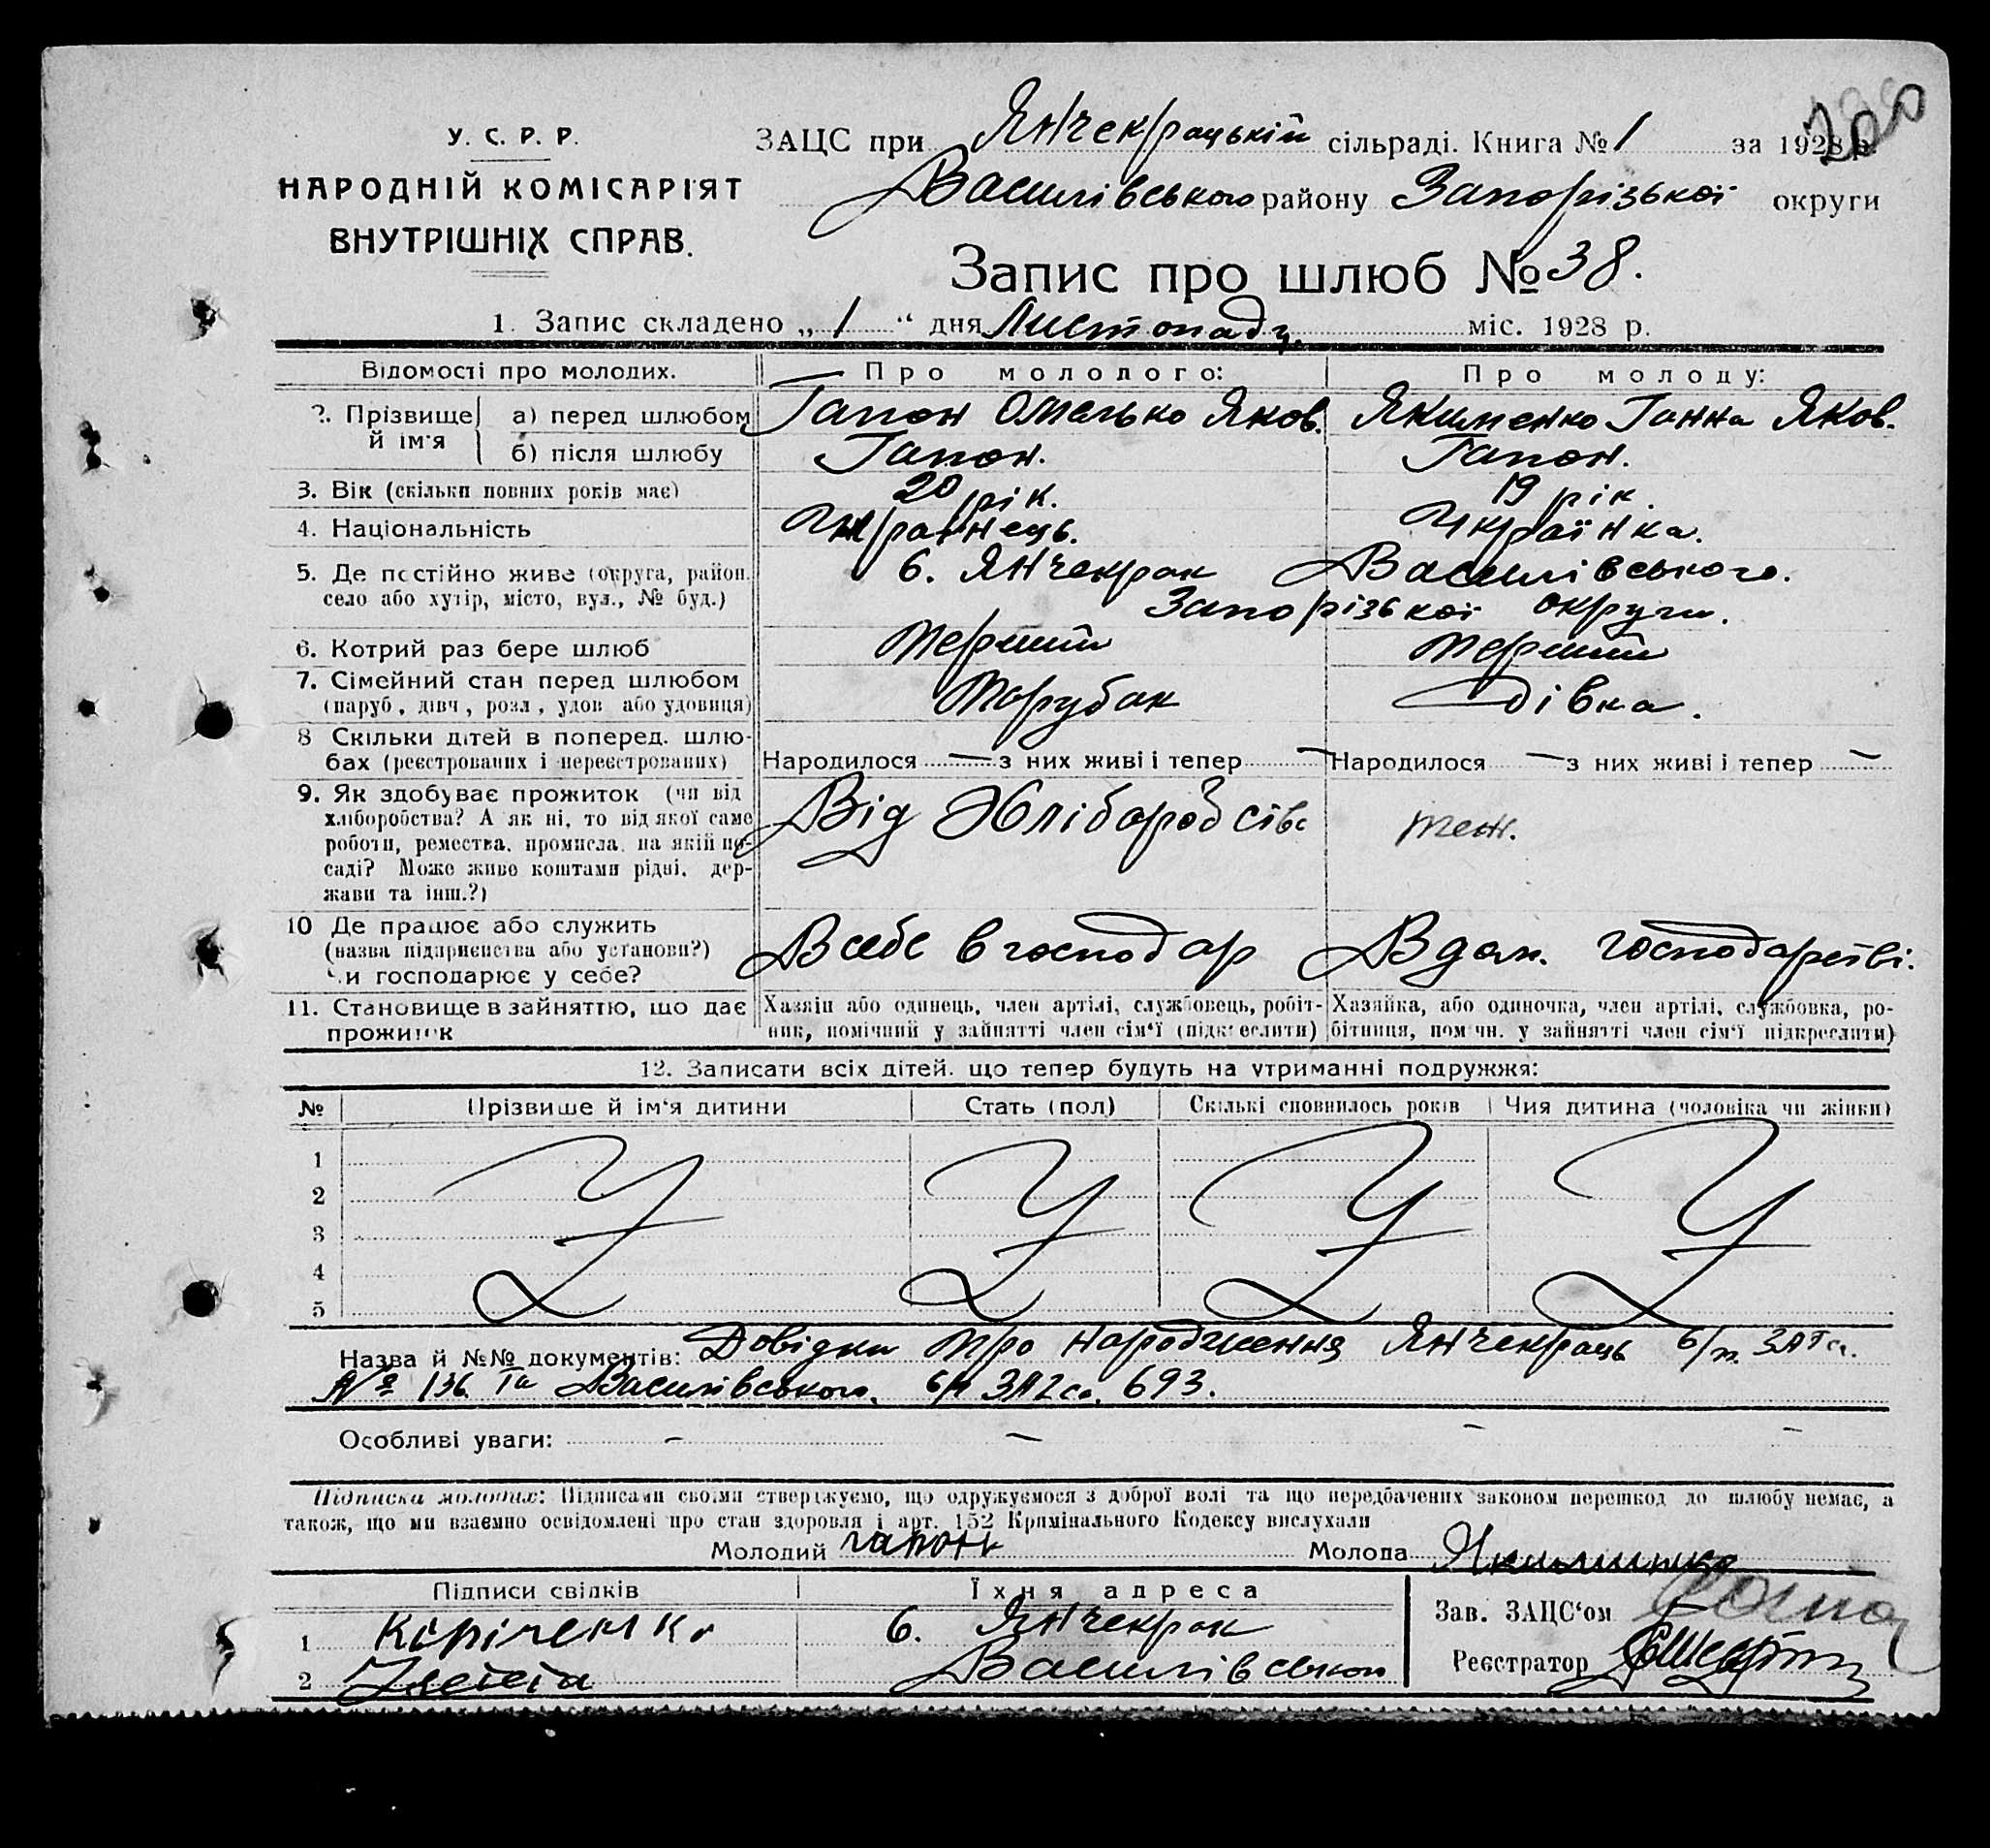 200
У. С. Р. Р.
НАРОДНІЙ КОМІСАРІЯТ
ВНУТРІШНІХ СПРАВ.
ЗАЦС при Янчекрацькій сільраді. Книга № 1 за 1928 р.
Василівського району Запорізької округи
Запис про шлюб № 38.
1. Запис складено „ 1 “ дня Листопада міс. 1928 р.
Відомості про молодих. Про молодого: Про молоду:
2. Прізвище й ім'я а) перед шлюбом Гапон Омелько Яков. Якименко Ганна Яков.
б) після шлюбу Гапон. Гапон.
3. Вік (скільки повних років має) 20 рік. 19 рік.
4. Національність Українець. Українка.
5. Де постійно живе (округа, район. с. Янчекрак Василівського.
село або хутір, місто, вул., № буд.) Запорізької округи.
6. Котрий раз бере шлюб перший перший
7. Сімейний стан перед шлюбом Парубак Дівка.
(паруб., дівч., розл., удов. або удовиця)
8 Скільки дітей в поперед. шлю-
бах (реєстрованих і нереєстрованих) Народилося — з них живі і тепер — Народилося — з них живі і тепер —
9. Як здобуває прожиток (чи від Від Хліборобсів теж.
хліборобства? А як ні, то від якої саме
роботи, ремества, промисла, на якій по-
саді? Може живе коштами рідні, дер-
жави та інш.?)
10 Де працює або служить
(назва підприємства або установи?) В себе в господар В дом. господарстві.
Чи господарює у себе?
11. Становище в зайняттю, що дає Хазяїн або одинець, член артілі, службовець, робіт- Хазяйка, або одиночка, член артілі, службовка, ро-
прожиток ник, помічний у зайнятті член сім'ї (підкреслити) бітниця, помічн. у зайнятті член сім'ї підкреслити)
12. Записати всіх дітей. що тепер будуть на утриманні подружжя:
№ Прізвище й ім'я дитини Стать (пол) Скількі сповнилось років Чия дитина (чоловіка чи жінки)
1
2
3
4
5
Назва й №№ документів: Довідки про народження Янчекраць с/р. ЗАГса.
№ 136 Та Василівського. ЗАГса. 693.
Особливі уваги: — — — —
Підписка молодих: Підписами своїми стверджуємо, що одружуємося з доброї волі та що передбачених законом перешкод до шлюбу немає, а
також, що ми взаємно освідомлені про стан здоровля і арт. 152 Кримінального Кодексу вислухали
Молодий гапон Молода
Підписи свідків Їхня адреса
Зав. ЗАЦС'ом
1 с. Янчекрак
Реєстратор
2 Василівського